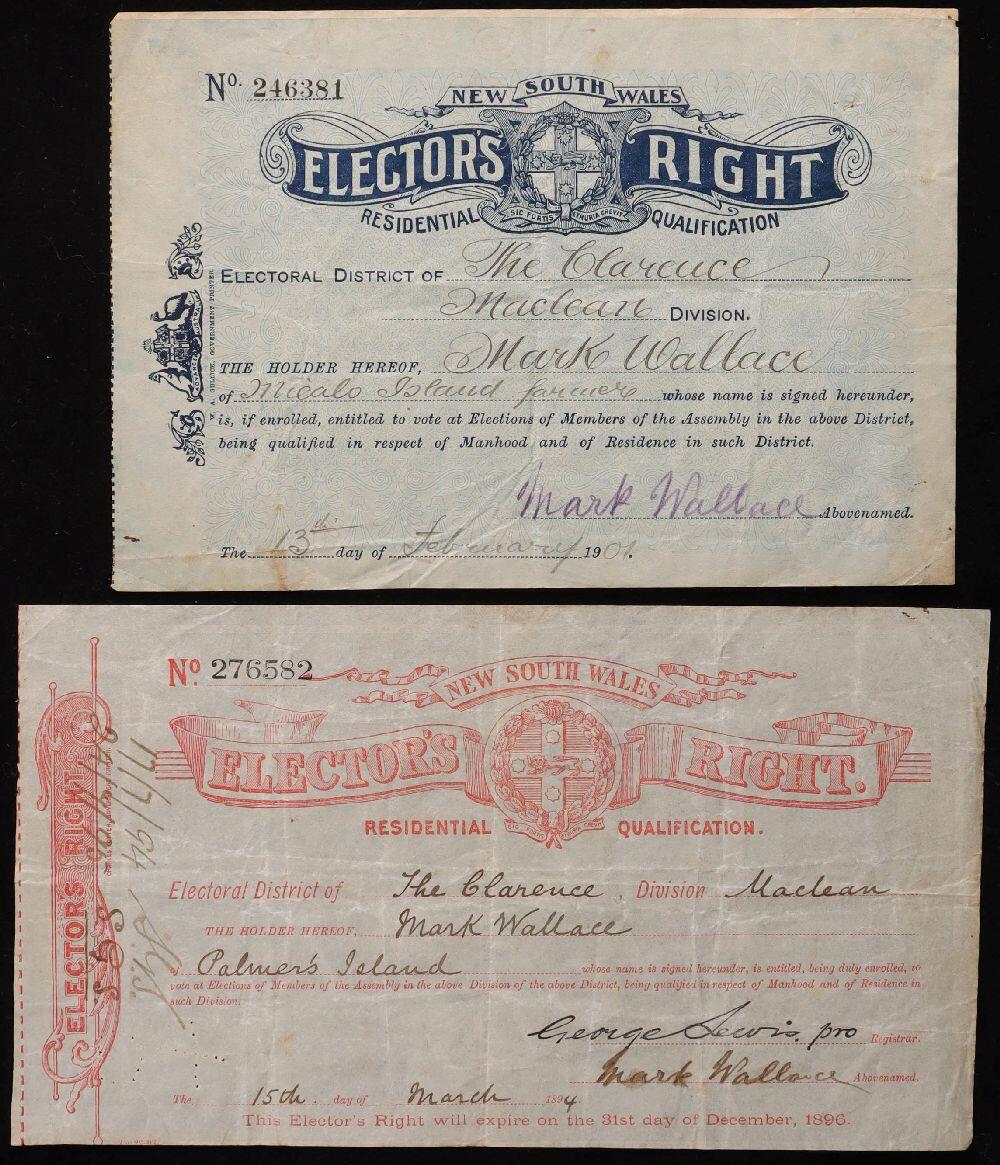 No. 246381
NEW SOUTH WALES
ELECTOR'S RIGHT
SIC FORTIS ETRURIA CREVIT
RESIDENTIAL QUALIFICATION
ELECTORAL DISTRICT OF The Clarence
Maclean DIVISION.
THE HOLDER HEREOF, Mark Wallace
of Micalo Island farmer whose name is signed hereunder,
is, if enrolled, entitled to vote at Elections of Members of the Assembly in the above District,
being qualified in respect of Manhood and of Residence in such District.
Mark Wallace Abovenamed.
The 13th day of February 1901.
GOVERNMENT PRINTER
No. 276582
NEW SOUTH WALES
ELECTOR'S RIGHT.
SIC FORTIS
RESIDENTIAL QUALIFICATION.
Electoral District of The Clarence, Division Maclean
THE HOLDER HEREOF, Mark Wallace
of Palmer's Island whose name is signed hereunder, is entitled, being duly enrolled, to
vote at Elections of Members of the Assembly in the above Division of the above District, being qualified in respect of Manhood and of Residence in
such Division.
George Lewis, pro Registrar.
Mark Wallace Abovenamed.
The 15th day of March 1894.
This Elector's Right will expire on the 31st day of December, 1896.
ELECTOR'S RIGHT
17/7/94